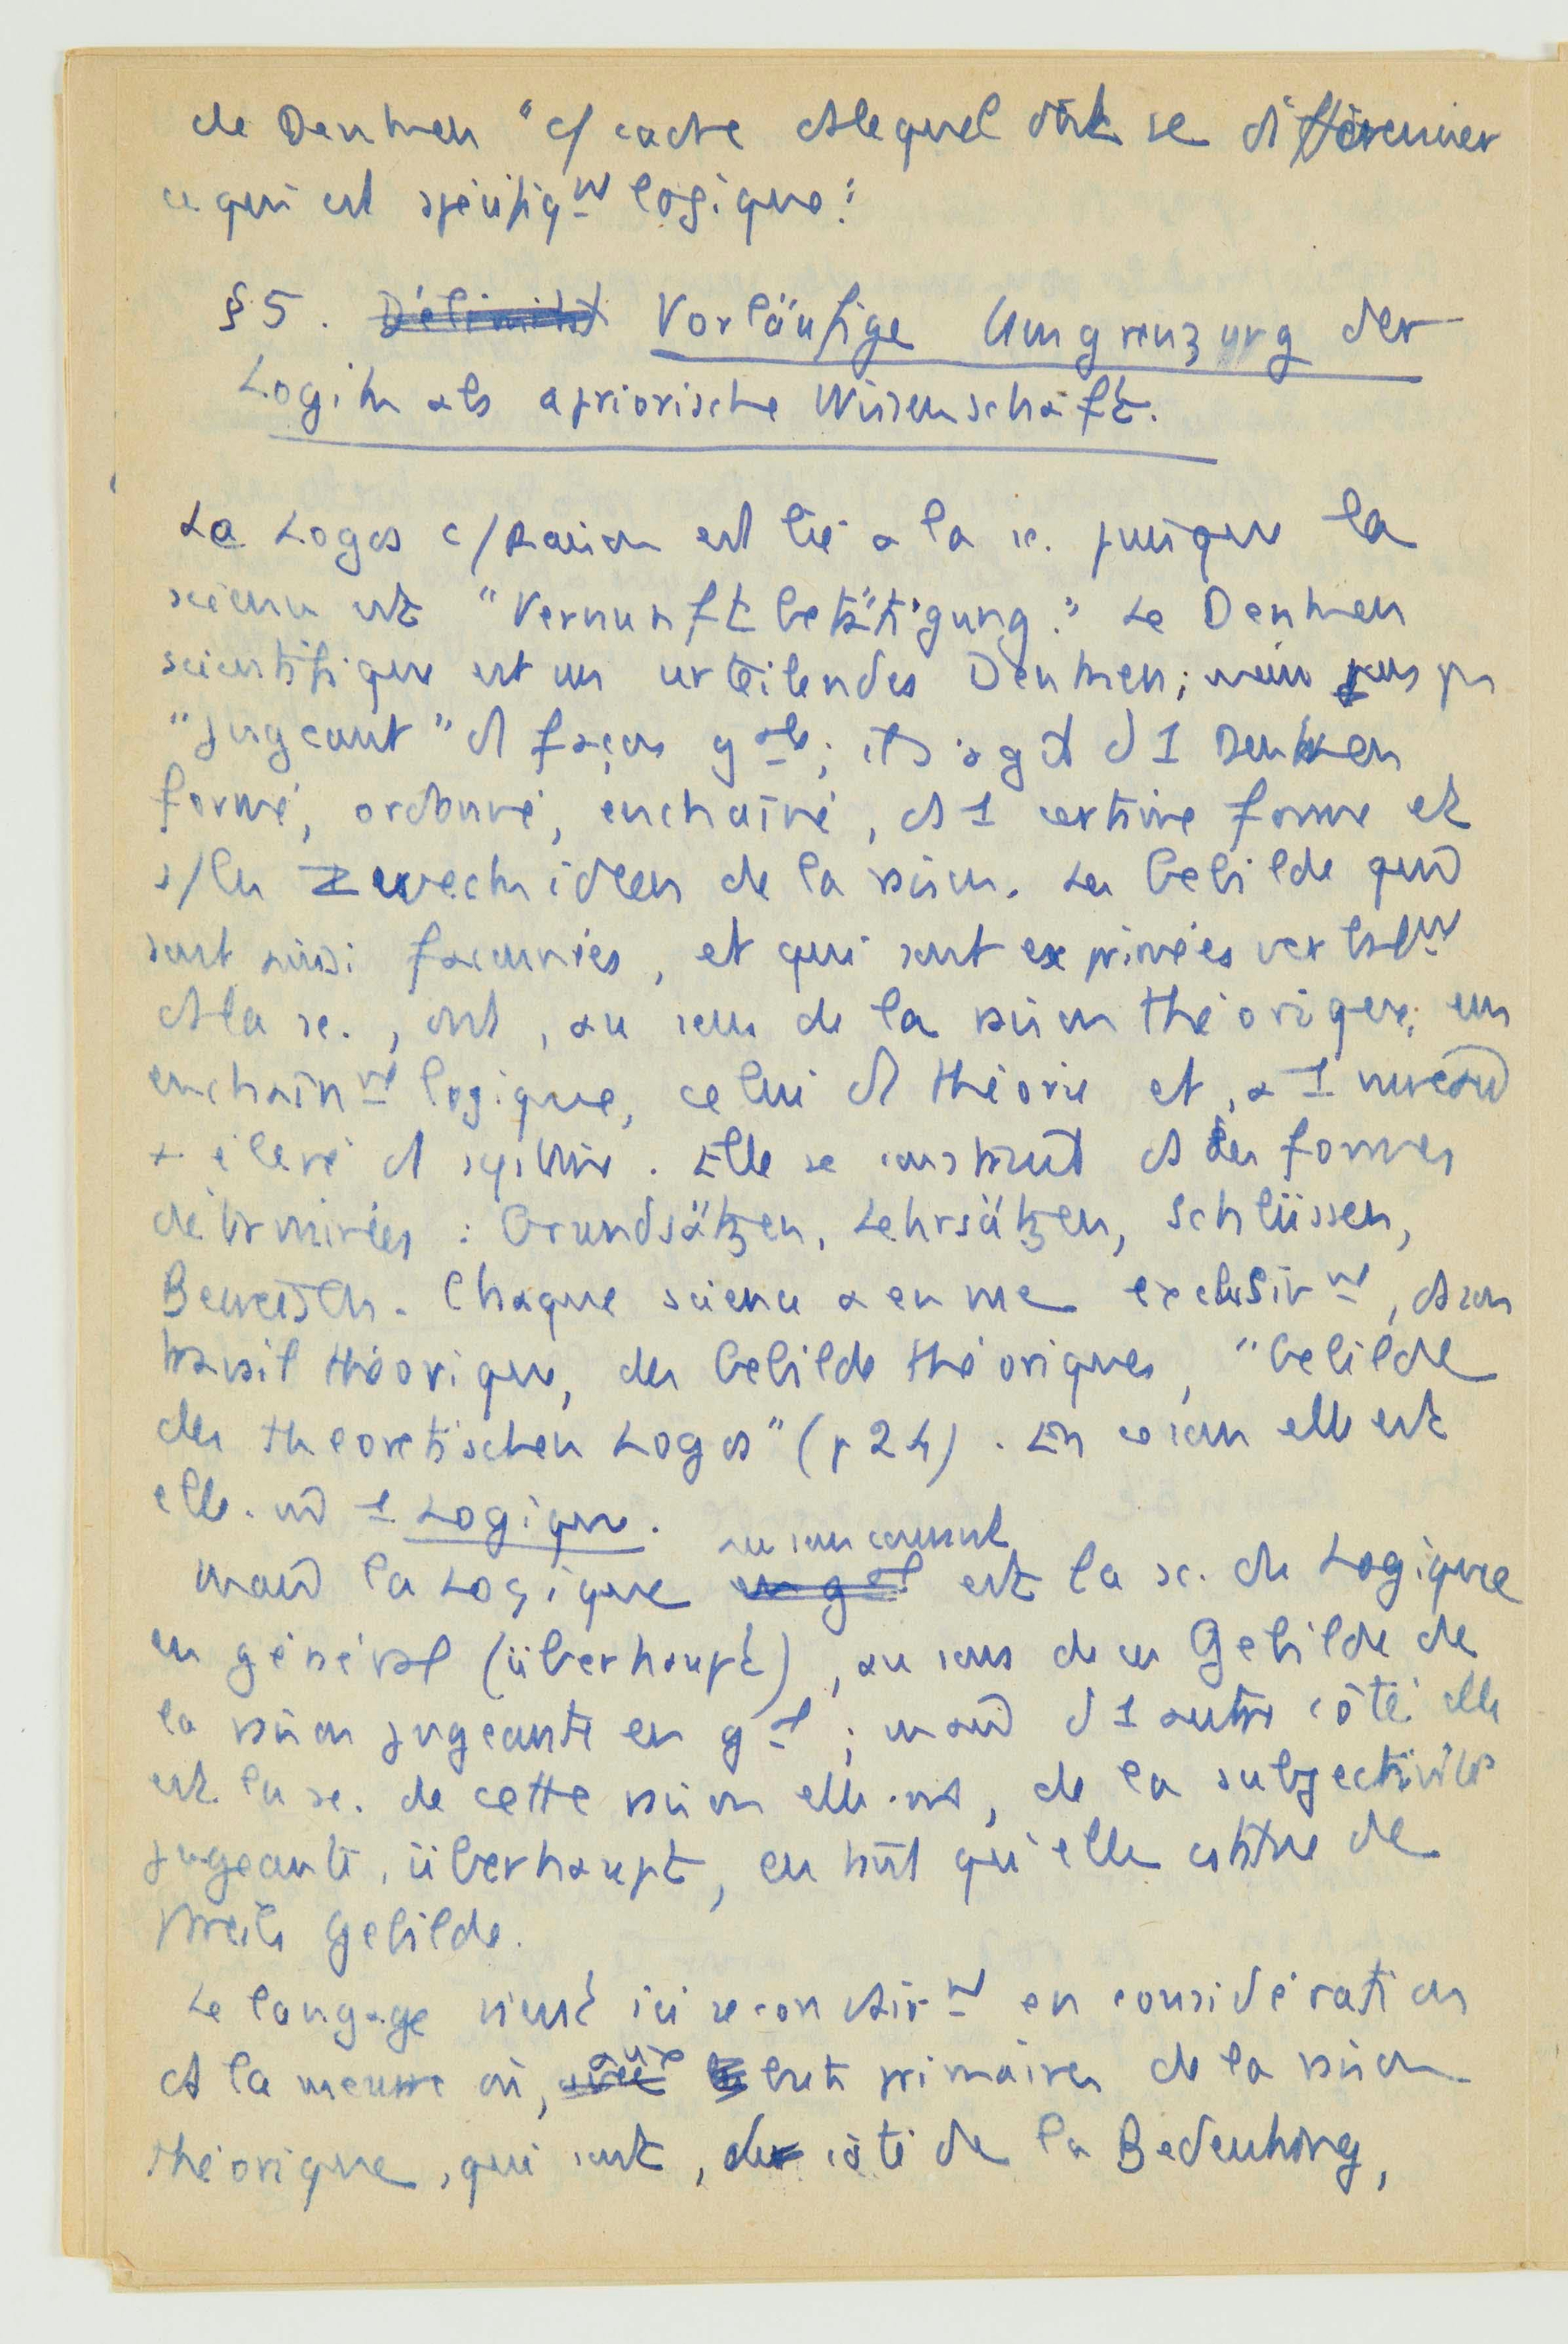 de Denken "c/ cadre ds lequel doit se différencier
ce qui est spécifiqnt logique."
§5. Délimitat Vorläufige Umgrenzung der
Logik als apriorische Wissenschaft.
Le Logos c/ Raison est lié à la sc. puisque la
science est "Vernunftbetätigung." Le Denken
scientifique est un urteilendes Denken; mais pas
"jugeant" d façon gale; il s'agit d 1 Denken
formé, ordonné, enchaîné, ds 1 certaine forme et
s/ les Zweckideen de la raison. Les Gebilde qui
sont ainsi façonnées, et qui sont exprimées verbalnt
ds la sc., ont, au sens de la raison théorique, un
enchaînnt logique, celui d théorie et, à 1 niveau
+ élevé d système. Elle se construit ds des formes
déterminées : Grundsätzen, Lehrsätzen, Schlüssen,
Beweisen. Chaque science a en vue exclusivnt, ds son
travail théorique, des Gebilde théoriques, "Gebilde
des theoretischen Logos" (p 24). En ce sens elle est
elle-m 1 Logique.
au sens courant
mais la Logique en gal est la sc. du Logique
en général (überhaupt), au sens de ces Gebilde de
la raison jugeante en gal; mais d 1 autre côté elle
est la sc. de cette raison elle-m, de la subjectivité
jugeante, überhaupt, en tant qu'elle constitue de
pareils Gebilde.
Le langage vient ici secondairnt en considération
aux
ds la mesure où, buts primaires de la raison
théorique, qui sont, du côté de la Bedeutung,